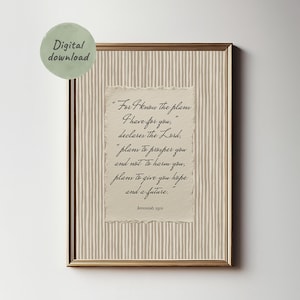 Digital
download
"For I know the plans
I have for you,"
declares the Lord,
"plans to prosper you
and not to harm you,
plans to give you hope
and a future.
Jeremiah 29:11